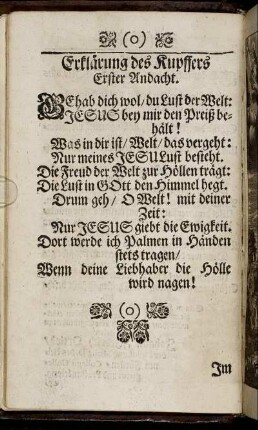 (o)
Erklärung des Kupffers
Erster Andacht.
GEhab dich wol/ du Lust der Welt:
JESUS bey mir den Preiß be-
hält!
Was in dir ist/ Welt/ das vergeht:
Nur meines JESU Lust besteht.
Die Freud der Welt zur Höllen trägt:
Die Lust in GOtt den Himmel hegt.
Drum geh/ O Welt! mit deiner
Zeit:
Nur JESUS giebt die Ewigkeit.
Dort werde ich Palmen in Händen
stets tragen/
Wenn deine Liebhaber die Hölle
wird nagen!
(o)
Im